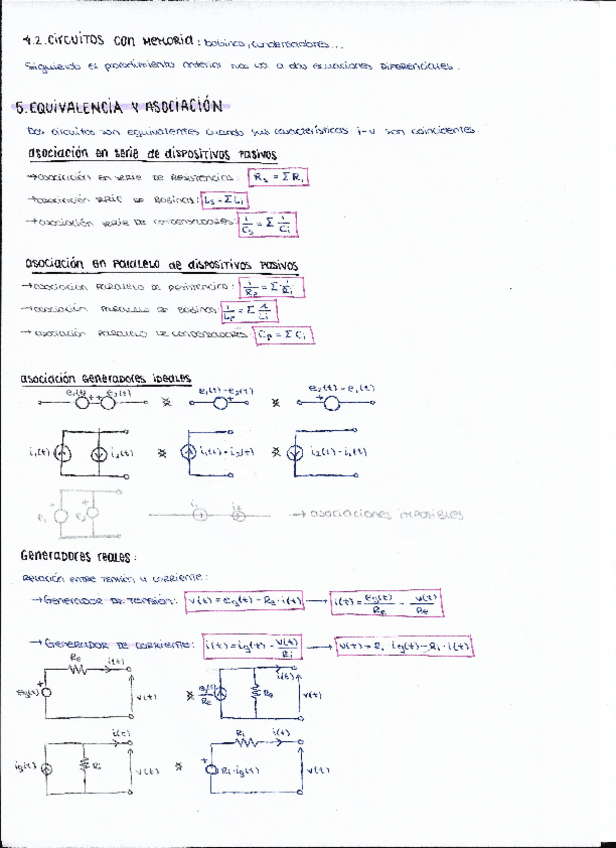 4.2. CIRCUITOS CON MEMORIA: bobinas, condensadores...
Siguiendo el procedimiento anterior nos lleva a dos ecuaciones DIFERENCIALES.
5. EQUIVALENCIA Y ASOCIACIÓN
Dos circuitos son equivalentes cuando sus características i-v son coincidentes.
asociación en serie de dispositivos pasivos
→asociación en serie de resistencias: Rs = ΣRi
→asociación serie de bobinas: Ls = ΣLi
→asociación serie de condensadores: 1/Cs = Σ 1/Ci
asociación en paralelo de dispositivos pasivos
→asociación paralelo de resistencias: 1/Rp = Σ 1/Ri
→asociación paralelo de bobinas: 1/Lp = Σ 1/Li
→asociación paralelo de condensadores: Cp = ΣCi
asociación Generadores ideales
e1(t) + + e2(t) e1(t)-e2(t) + e2(t)-e1(t) +
i1(t) i2(t) i1(t)-i2(t) i2(t)-i1(t)
+ e1 + e2 i1 i2 → asociaciones imposibles
Generadores reales:
Relación entre tensión y corriente:
→Generador de tensión: v(t) = eg(t) - Re · i(t) → i(t) = eg(t)/Re - v(t)/Re
→Generador de corriente: i(t) = ig(t) - v(t)/Ri → v(t) = Ri ig(t) - Ri · i(t)
Re i(t) i(t)
+ eg(t) v(t) eg(t)/Re Re v(t)
i(t) Ri i(t)
ig(t) Ri v(t) + Ri·ig(t) v(t)